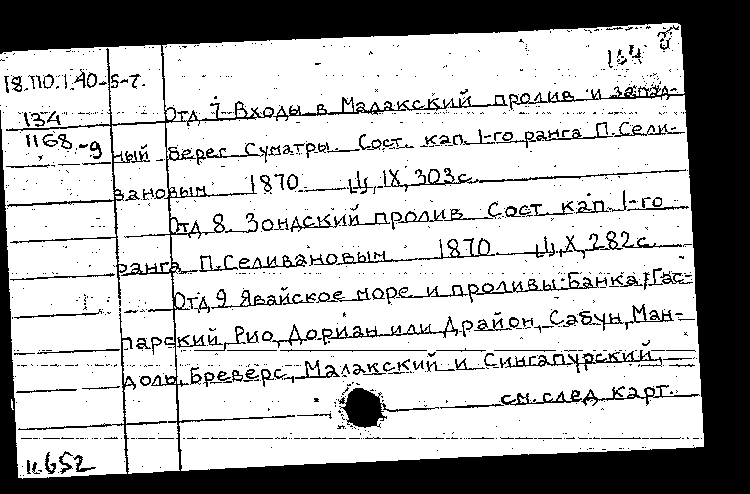 164
18.110.1.40-5-7.
134
1168.-9
Отд. 7 Входы в Малакский пролив и запад-
ный берег Суматры. Сост. кап. 1-го ранга П. Сели-
вановым 1870. IX, 303 с.
Отд. 8. Зондский пролив Сост. кап. 1-го
ранга П. Селивановым 1870. X, 282 с.
Отд 9 Явайское море и проливы: Банка, Гас-
парский, Рио, Дориан или Драйон, Сабун, Ман-
доль, Бреверс, Малакский и Сингапурский,
см. след. карт.
652